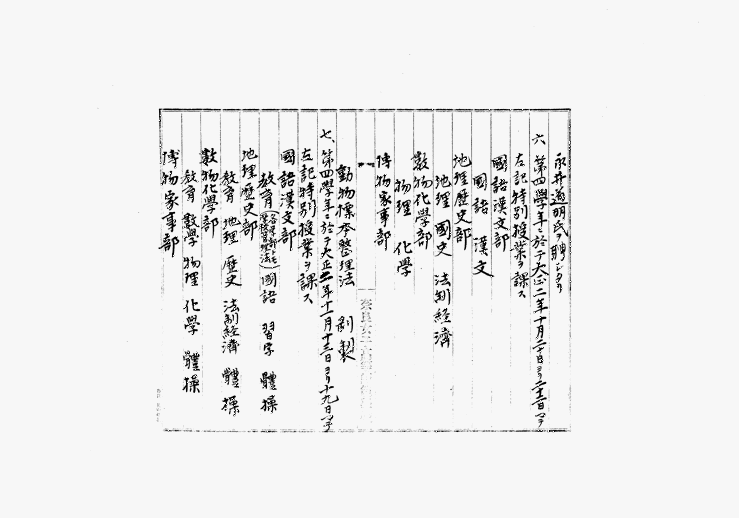 永井道明氏ヲ聘シタリ
六、第四學年ニ於テ大正二年十月二十日ヨリ二十二日マデ
左記特別授業ヲ課ス
國語漢文部
國語 漢文
地理歷史部
地理 國史 法制經濟
數物化學部
物理 化學
博物家事部
動物標本整理法 剝製
七、第四學年ニ於テ大正三年十一月十三日ヨリ十九日マデ
左記特別授業ヲ課ス
國語漢文部
教育 國語 習字 體操
地理歷史部
教育 地理 歷史 法制經濟 體操
數物化學部
教育 數學 物理 化學 體操
博物家事部